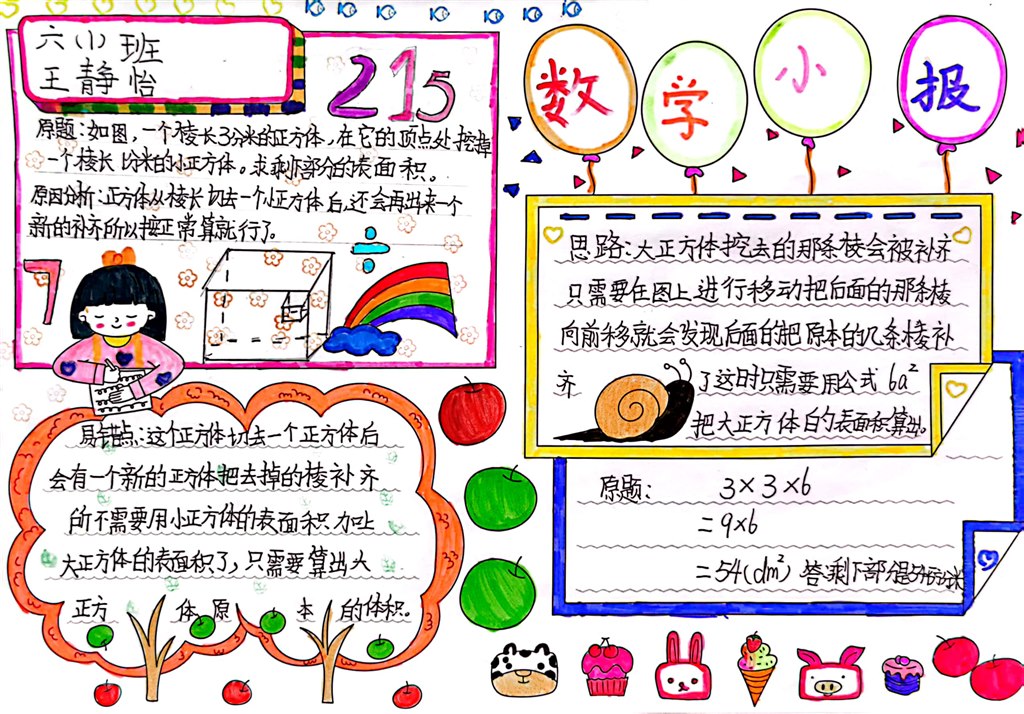 六(1)班
王静怡
215
原题:如图,一个棱长3分米的正方体,在它的顶点处挖掉
一个棱长1分米的小正方体。求剩下部分的表面积。
原因分析:正方体从棱长切去一个小正方体后,还会再出来一个
新的补齐所以按正常算就行了。
7
易错点:这个正方体切去一个正方体后
会有一个新的正方体把去掉的棱补齐
所不需要用小正方体的表面积加上
大正方体的表面积了,只需要算出大
正方体原本的体积。
数学小报
思路:大正方体挖去的那条棱会被补齐
只需要在图上进行移动把后面的那条棱
向前移,就会发现后面的把原本的几条棱补
齐了这时只需要用公式6a²
把大正方体的表面积算出。
原题: 3×3×6
=9×6
=54(dm²) 答:剩下部分是54平方分米